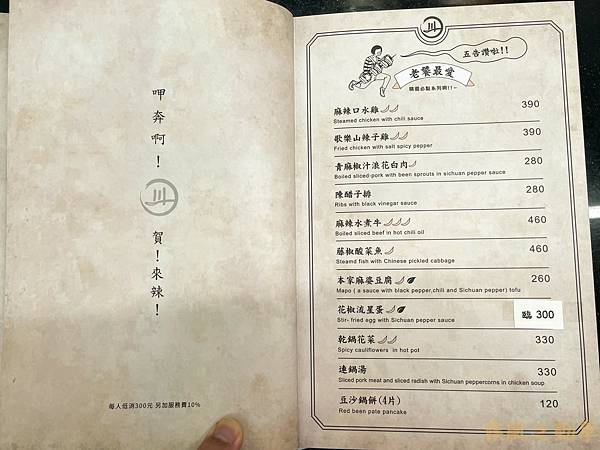 呷奔啊！
川
賀！來辣！
每人低消300元 另加服務費10%
川
五告讚啦!!
老饕最愛
精選必點系列唷!!~
麻辣口水雞 390
Steamed chicken with chili sauce
歌樂山辣子雞 390
Fried chicken with salt spicy pepper
青麻椒汁浪花白肉 280
Boiled sliced-pork with been sprouts in sichuan pepper sauce
陳醋子排 280
Ribs with black vinegar sauce
麻辣水煮牛 460
Boiled sliced beef in hot chili oil
藤椒酸菜魚 460
Steamd fish with Chinese pickled cabbage
本家麻婆豆腐 260
Mapo ( a sauce with black pepper,chili and Sichuan pepper) tofu
花椒流星蛋 臨 300
Stir- fried egg with Sichuan pepper sauce
乾鍋花菜 330
Spicy cauliflowers in hot pot
連鍋湯 330
Sliced pork meat and sliced radish with Sichuan peppercorns in chicken soup
豆沙鍋餅(4片) 120
Red been pate pancake